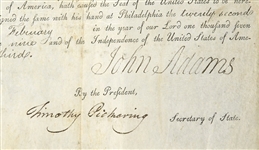 of America, hath caused the Seal of the United States to be here-
signed the same with his hand at Philadelphia the twenty second
February in the year of our Lord one thousand seven
nine and of the Independence of the United States of Ame-
third.
John Adams
By the President,
Timothy Pickering Secretary of State.